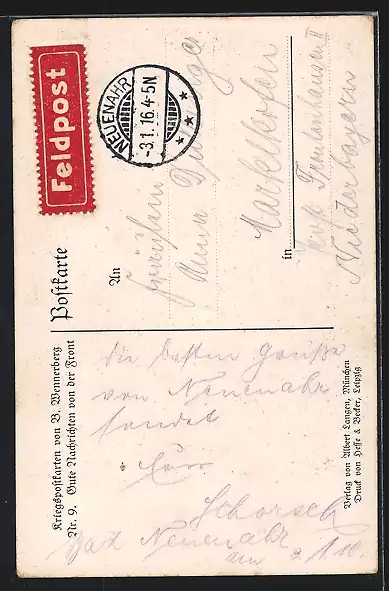 Feldpost
NEUENAHR
-3.1.16.4-5N
Postkarte
An
Fräulein
Anna
Marklkofen
in
Niederbayern
Kriegspostkarten von B. Wennerberg
Nr. 9. Gute Nachrichten von der Front
die besten Grüße
von Neuenahr
sendet
Schorsch
Bad Neuenahr
am 3.1.16.
Verlag von Albert Langen, München
Druck von Hesse & Becker, Leipzig